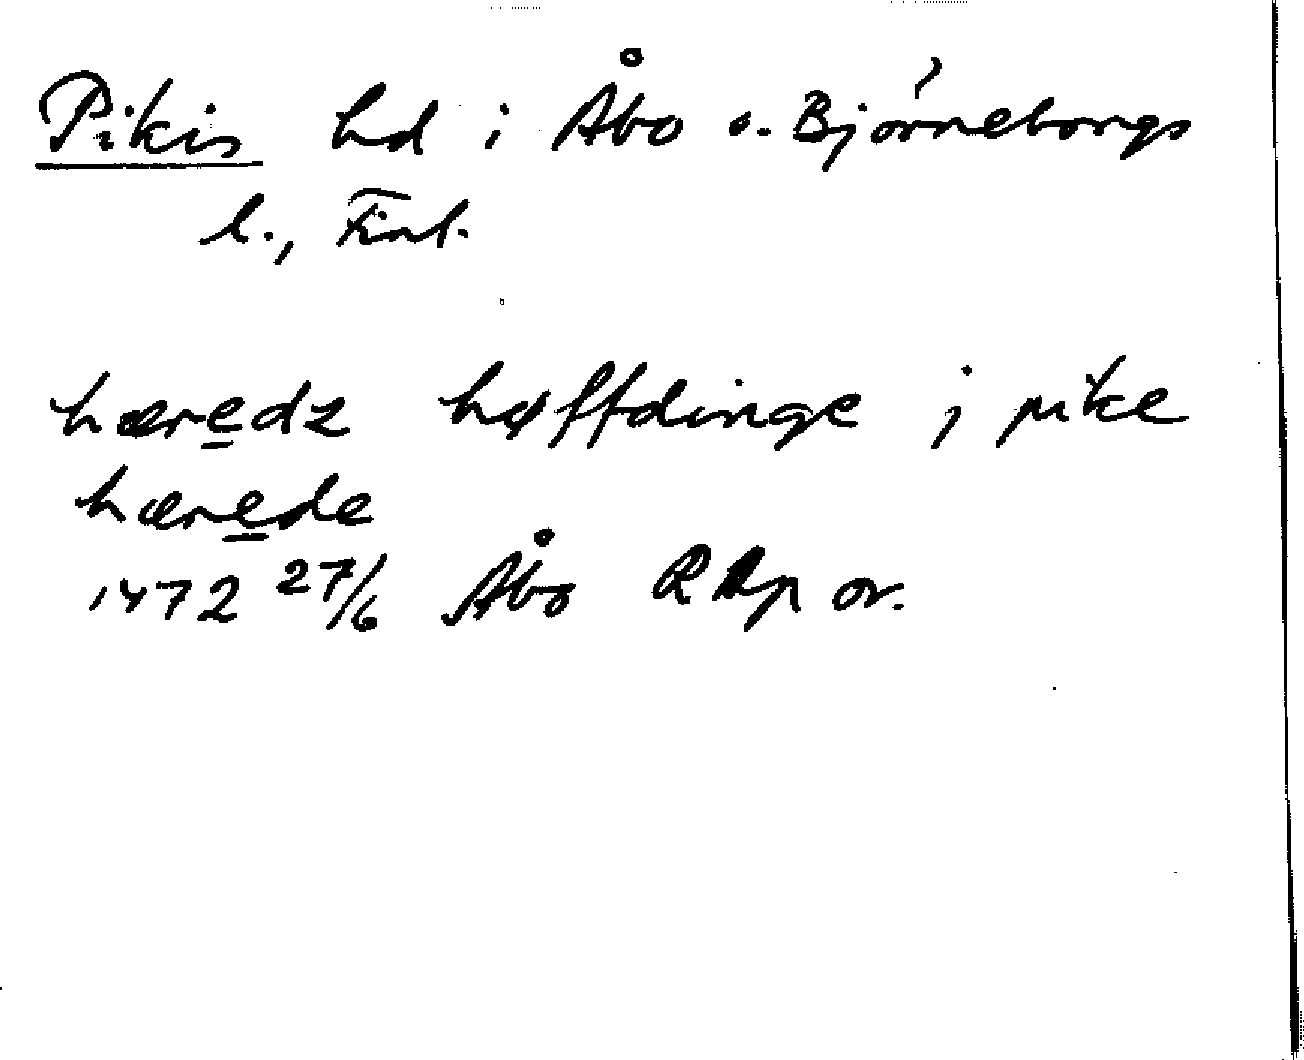 Pikis hd i Åbo o. Björneborgs
l., Finl.
hæredz høffdinge j pike
hærede
1472 27/6 Åbo RAp or.